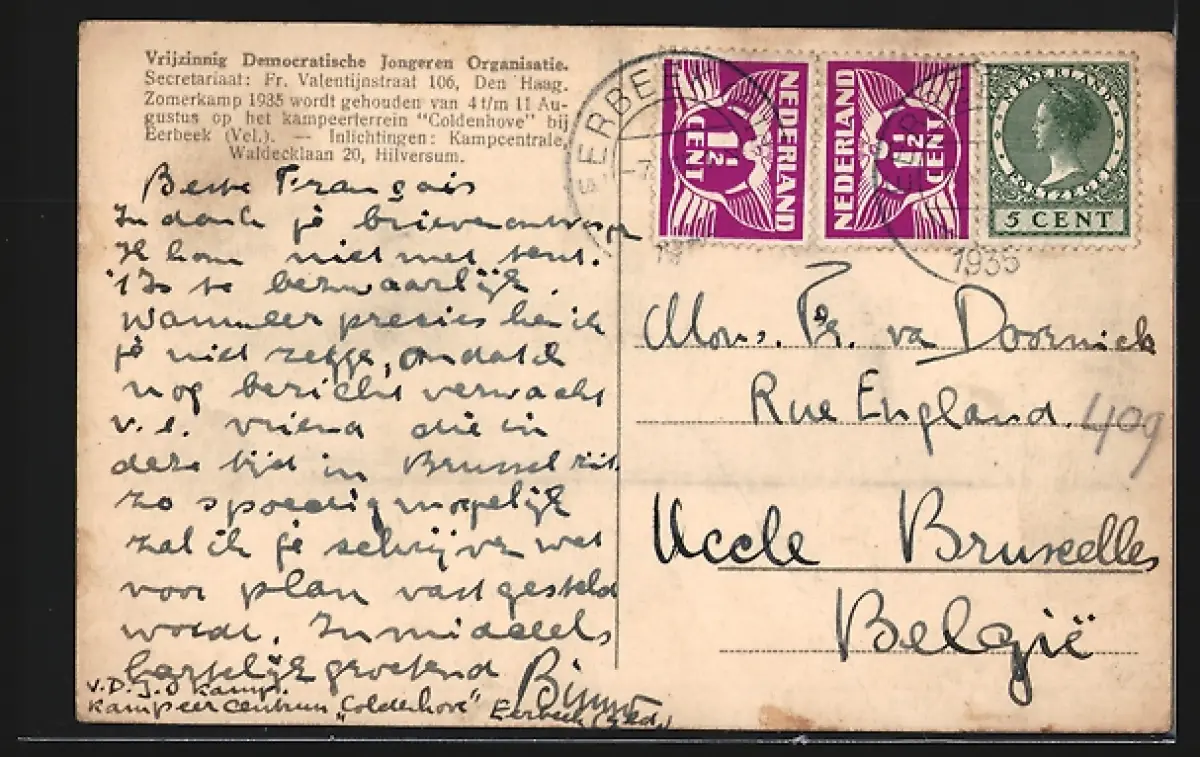 Vrijzinnig Democratische Jongeren Organisatie.
Secretariaat: Fr. Valentijnstraat 106, Den Haag.
Zomerkamp 1935 wordt gehouden van 4 t/m 11 Au-
gustus op het kampeerterrein "Coldenhove" bij
Eerbeek (Vel.). — Inlichtingen: Kampcentrale,
Waldecklaan 20, Hilversum.
Beste François
In dank je brief ontvangen
Ik kom niet met tent.
'Is te bezwaarlijk.
Wanneer precies kan ik
je niet zegge, omdat ik
nog bericht verwacht
v.e. vriend die in
deze tijd in Brussel zit.
Zo spoedig mogelijk
zal ik je schrijven wat
voor plan vastgesteld
wordt. Inmiddels
hartelijk groetend
V.D.J.O kamp.
Kampeercentrum "Coldenhove" Eerbeek (Geld.)
NEDERLAND
1½
CENT
NEDERLAND
1½
CENT
NEDERLAND
POSTZEGEL
5 CENT
EERBEEK
1935
Mons. Fr. va Doornick
Rue England. 409
Uccle Bruxelles
België